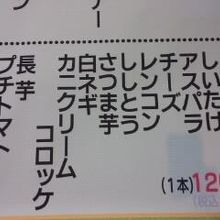 しいたけ
アスパラ
チーズ
レンコン
ししとう
さつま芋
白ネギ
カニクリーム
コロッケ
長芋
プチトマト
(1本)